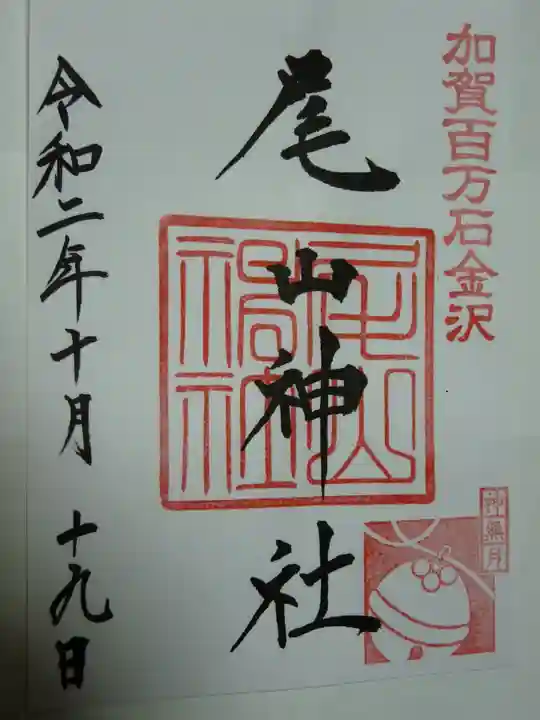 加賀百万石金沢
尾山神社
神無月
令和二年十月 十九日